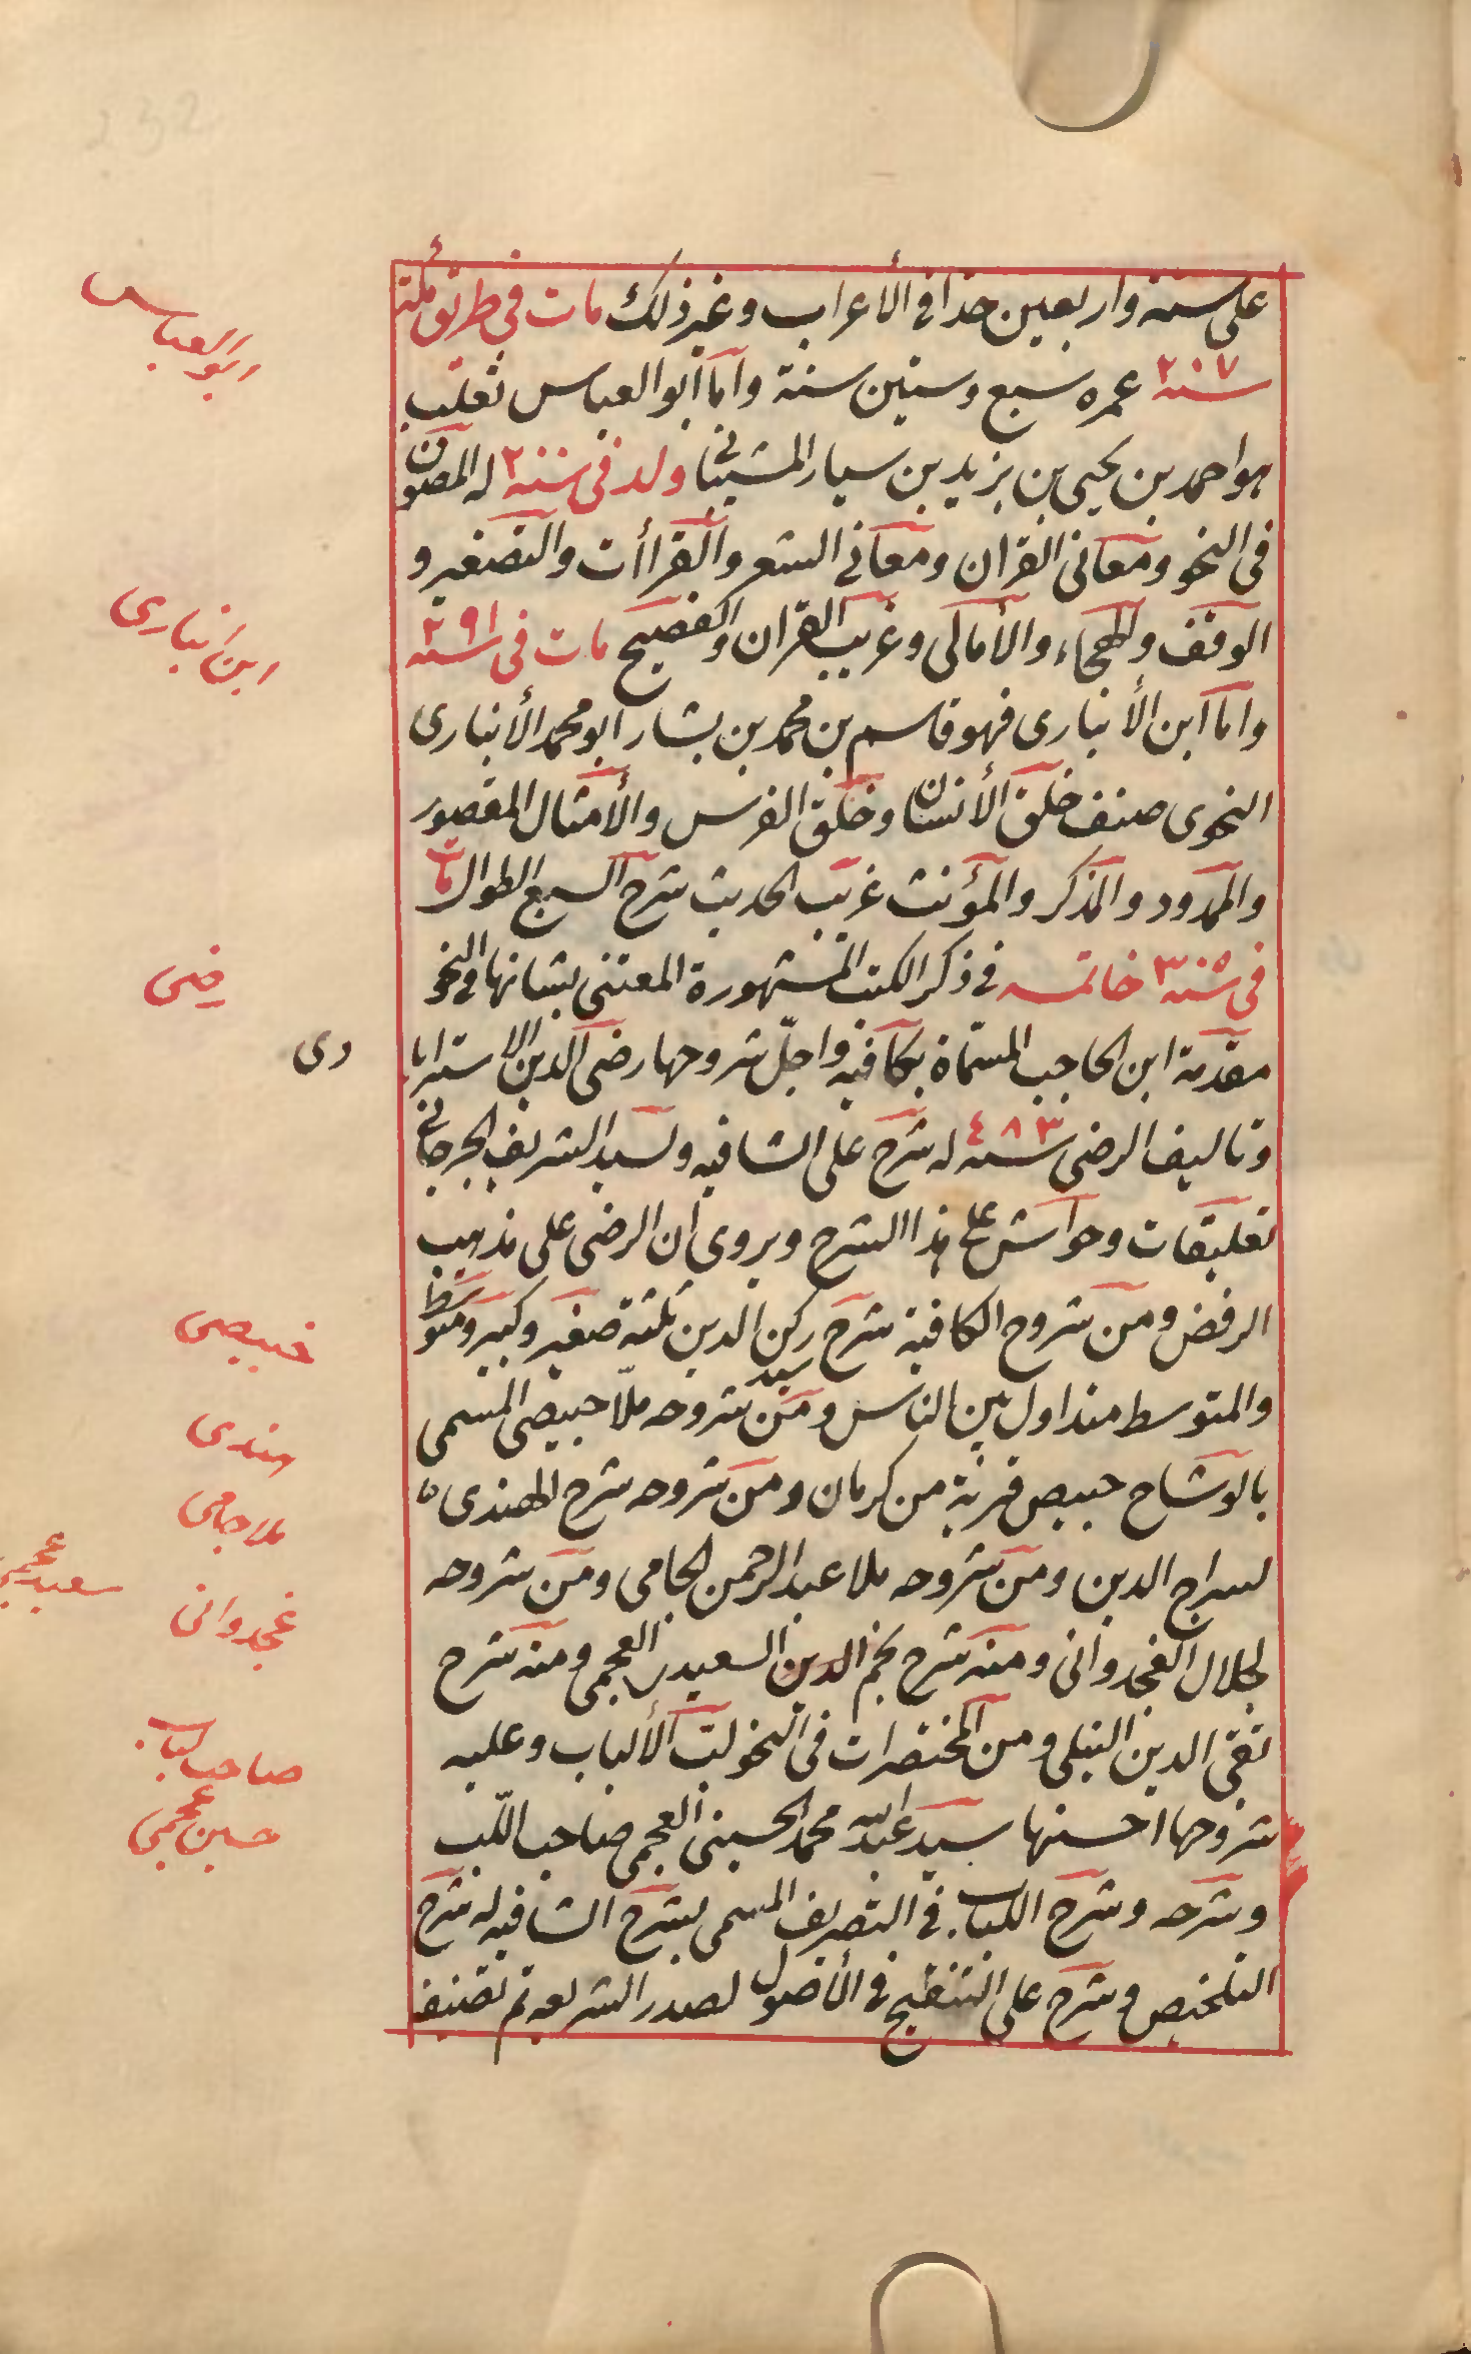 على ستة واربعين حدا في الأعراب وغير ذلك مات في طريق مكة
سنة ٢٠٧ عمره سبع وستين سنة واما ابو العباس ثعلب
هو احمد بن يحيى بن يزيد بن سيار الشيباني ولد في سنة ٢٠٠ له المصون
فى النحو ومعانى القران ومعاني الشعر والقراأت والتصغير و
الوقف والهجاء والأمالى وغريب القران والفصيح مات فى سنة ٢٩١
واما ابن الأنبارى فهو قاسم بن محمد بن بشار ابو محمد الأنبارى
النحوى صنف خلق الأنسان وخلق الفرس والأمثال المقصور
والممدود والمذكر والمؤنث غريب الحديث شرح السبع الطوال مات
فى سنة ٣٠٥ خاتمه في ذكر الكتب المشهورة المعتنى بشانها فى النحو
مقدمة ابن الحاجب المسمّاة بكافيه واجلّ شروحها رضى الدين الاسترابا
دى
وتاليف الرضى سنه ٤٨٣ له شرح على الشافيه ولسيد الشريف الجرجاني
تعليقات وحواش على هذا الشرح ويروى ان الرضى على مذهب
الرفض ومن شروح الكافية شرح سيد ركن الدين ثلثة صغير وكبير ومتوسط
والمتوسط متداول بين الناس ومن شروحه ملّا خبيصى المسمى
بالوشاح خبيص قرية من كرمان ومن شروحه شرح الهندى
لسراج الدين ومن شروحه ملا عبد الرحمن الجامى ومن شروحه
لجلال الغجدوانى ومنه شرح نجم الدين السعيدى العجمى ومنه شرح
تقى الدين النيلى ومن المختصرات فى النحو لبّ الألباب وعليه
شروحها احسنها سيد عبد الله محمد الحسينى العجمى صاحب اللب
وشرحه وشرح اللباب في التصريف المسمى بشرح الشافيه له شرح
التلخيص وشرح على التنقيح في الأصول لصدر الشريعه تم تصنيف
ابو العباس
ابن انبارى
رضى
خبيصى
هندى
ملا جامى
سعيد عجمى
غجدوانى
صاحب لباب
حسين عجمى